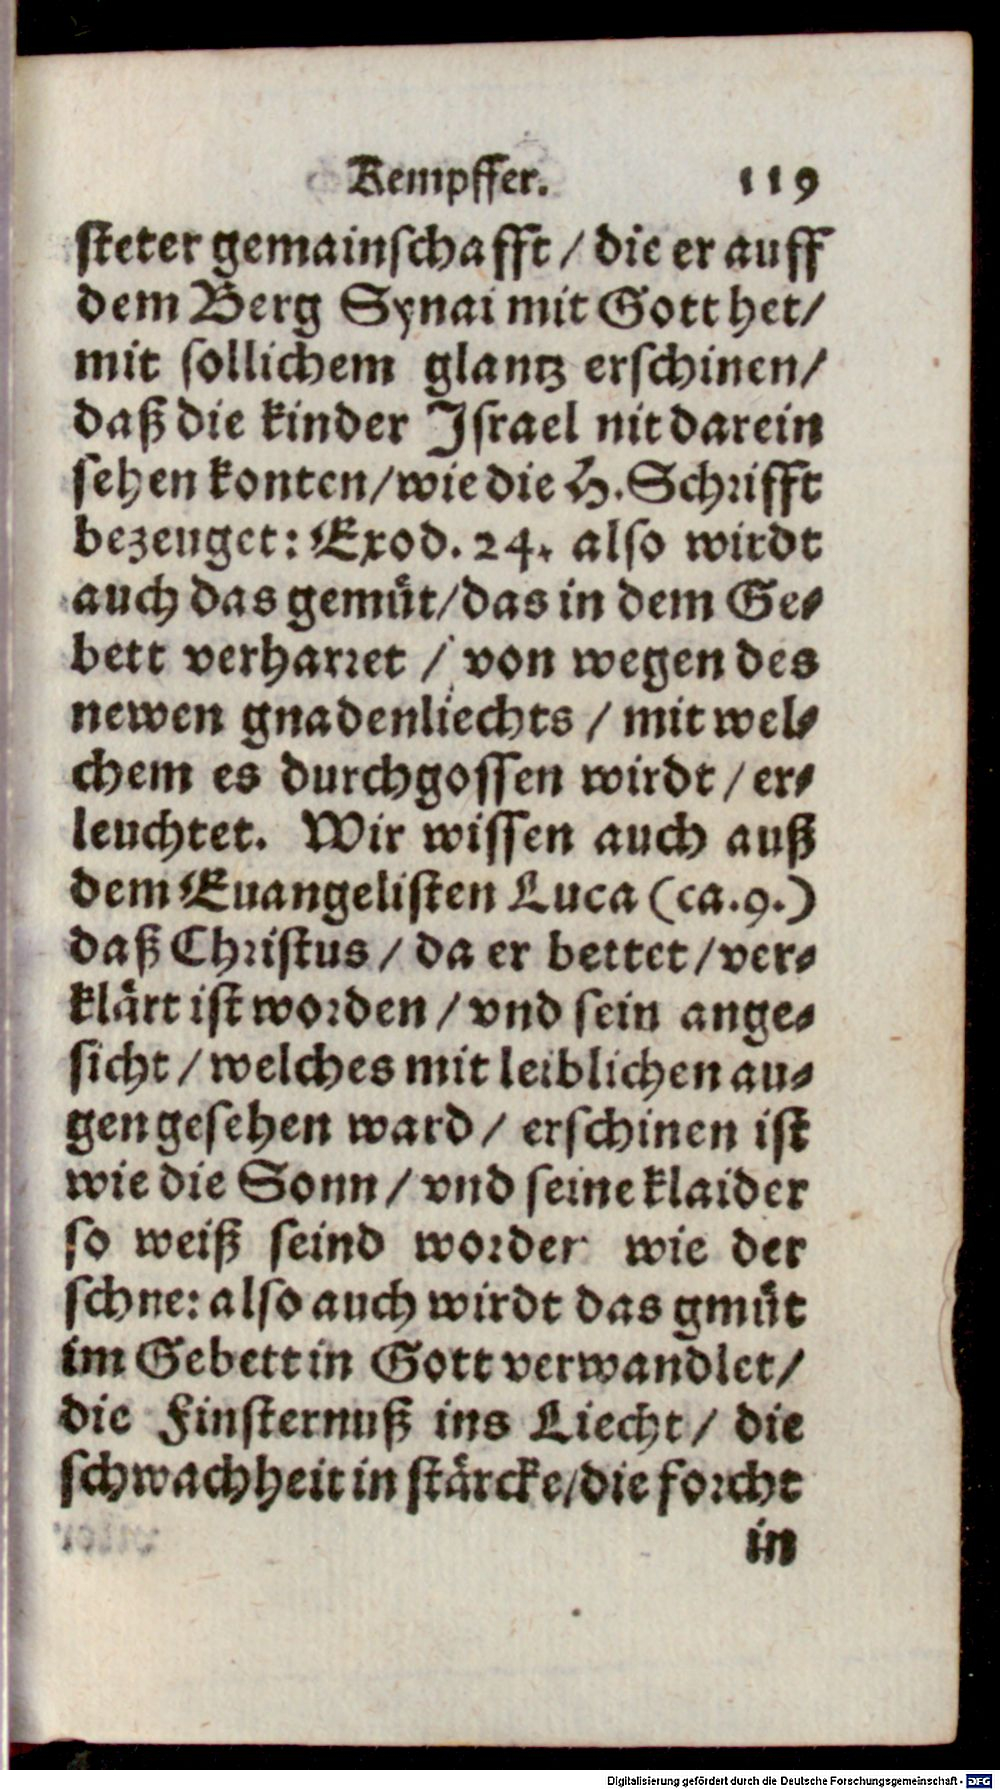 Kempffer. 119
steter gemainschafft / die er auff
dem Berg Synai mit Gott het /
mit sollichem glantz erschinen /
daß die kinder Israel nit darein
sehen konten / wie die H. Schrifft
bezeuget: Exod. 24. also wirdt
auch das gemüt / das in dem Ge-
bett verharret / von wegen des
newen gnadenliechts / mit wel-
chem es durchgossen wirdt / er-
leuchtet. Wir wissen auch auß
dem Euangelisten Luca (ca. 9.)
daß Christus / da er bettet / ver-
klärt ist worden / vnd sein ange-
sicht / welches mit leiblichen au-
gen gesehen ward / erschinen ist
wie die Sonn / vnd seine klaider
so weiß seind worden wie der
schne: also auch wirdt das gmüt
im Gebett in Gott verwandlet /
die Finsternuß ins Liecht / die
schwachheit in stärcke / die forcht
in
Digitalisierung gefördert durch die Deutsche Forschungsgemeinschaft - DFG